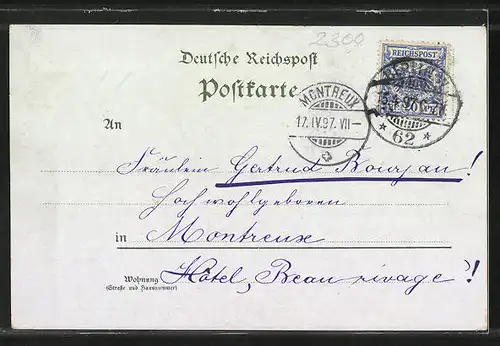 2300
Deutsche Reichspost
Postkarte
REICHSPOST
BERLIN
62
MONTREUX
17.IV.97.VII
An
Fräulein Gertrud Bourjau!
Hochwohlgeboren
in Montreux
Wohnung Hôtel, Beau rivage!
(Straße und Hausnummer)